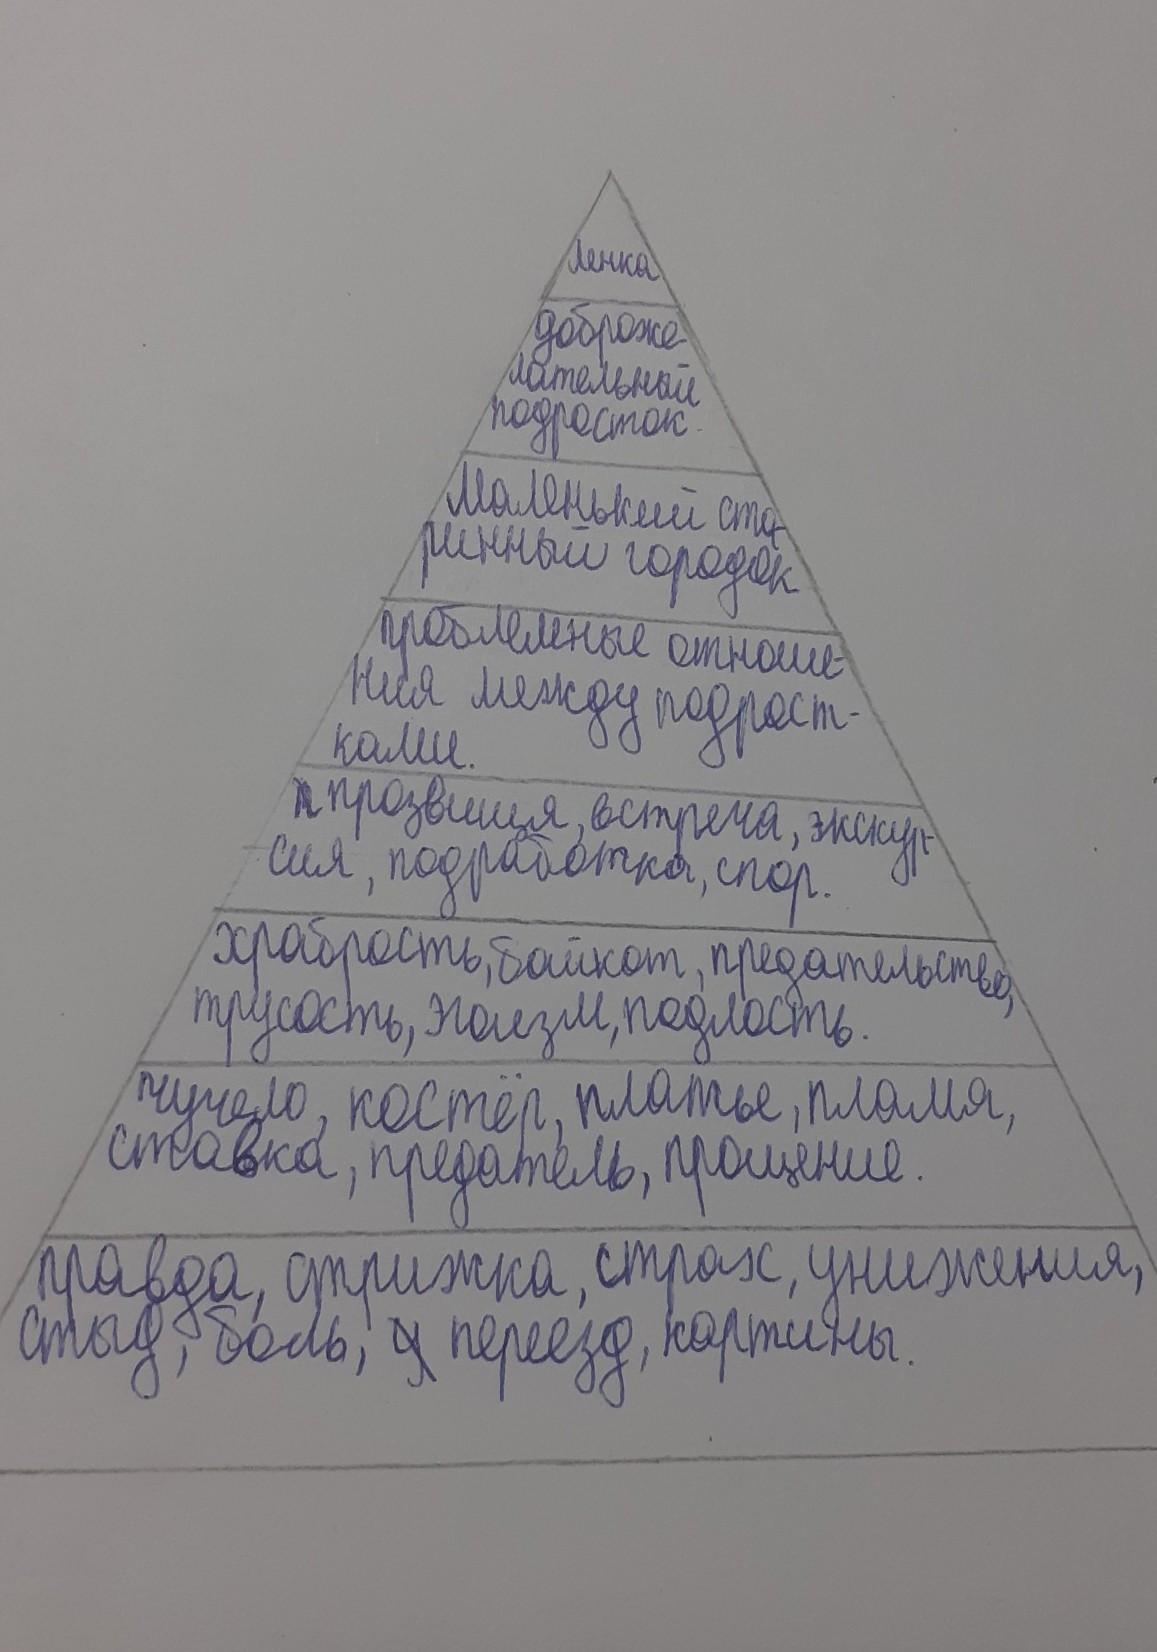 Ленка
доброже-
лательный
подросток.
Маленький ста-
ринный городок
проблемные отноше-
ния между подрост-
ками.
прозвища, встреча, экскур-
сия, подработка, спор.
храбрость, байкот, предательство,
трусость, эгоизм, подлость.
чучело, костёр, платье, пламя,
ставка, предатель, прощение.
правда, стрижка, страх, унижения,
стыд, боль, переезд, картины.